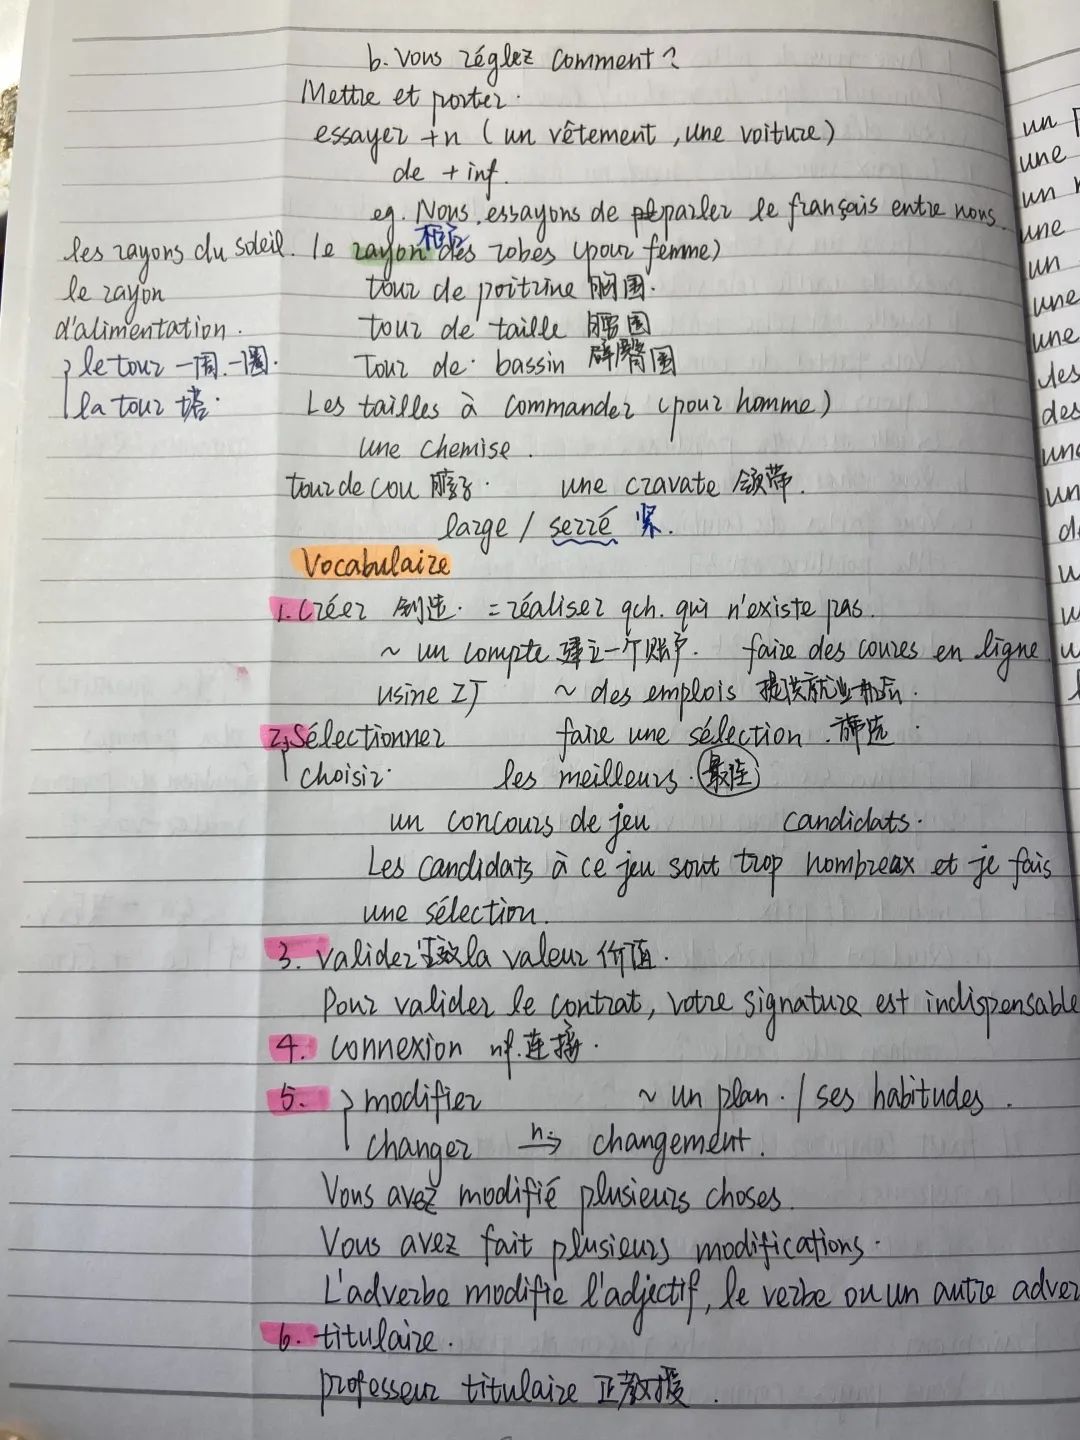 b. Vous réglez comment ?
Mettre et porter.
essayer + n ( un vêtement, une voiture)
de + inf.
eg. Nous essayons de parler le français entre nous.
les rayons du soleil.
le rayon
d'alimentation.
le tour 一周.一圈.
la tour 塔.
柜台
le rayon des robes (pour femme)
tour de poitrine 胸围.
tour de taille 腰围
Tour de bassin 臀围
Les tailles à commander (pour homme)
une chemise.
tour de cou 脖子. une cravate 领带.
large / serré 紧.
Vocabulaire
1. Créer 创造. = réaliser qch. qui n'existe pas.
~ un compte 建立一个账户. faire des cours en ligne
usine IT ~ des emplois 提供就业机会.
2. Sélectionner faire une sélection. 筛选
choisir. les meilleurs. (最佳)
un concours de jeu candidats.
Les candidats à ce jeu sont trop nombreux et je fais
une sélection.
3. valider 生效 la valeur 价值.
Pour valider le contrat, votre signature est indispensable
4. connexion nf. 连接.
5. modifier ~ un plan. / ses habitudes.
changer n. → changement.
Vous avez modifié plusieurs choses.
Vous avez fait plusieurs modifications.
L'adverbe modifie l'adjectif, le verbe ou un autre adver
6. titulaire.
professeur titulaire 正教授.
un
une
un
une
un
une
une
des
des
un